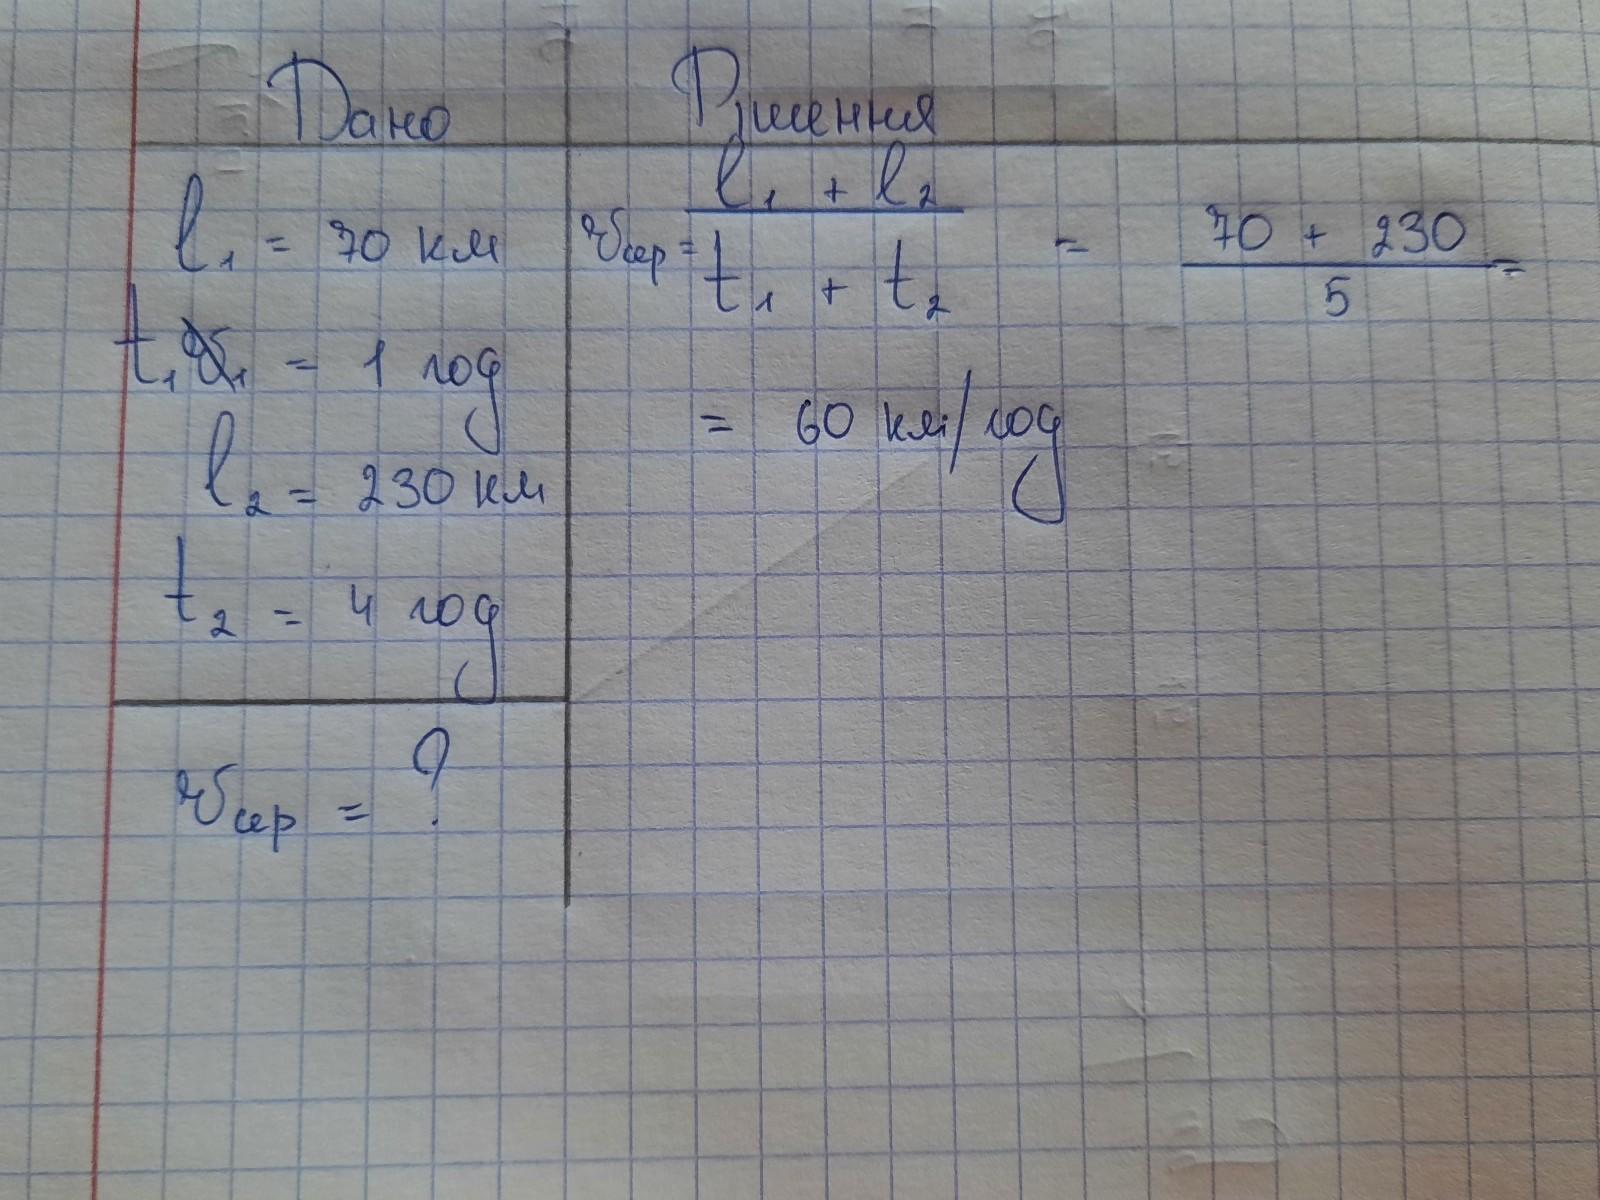 Дано
l₁ = 70 км
t₁ = 1 год
l₂ = 230 км
t₂ = 4 год
υсер = ?
Рішення
υсер = (l₁ + l₂) / (t₁ + t₂) = (70 + 230) / 5 =
= 60 км/год